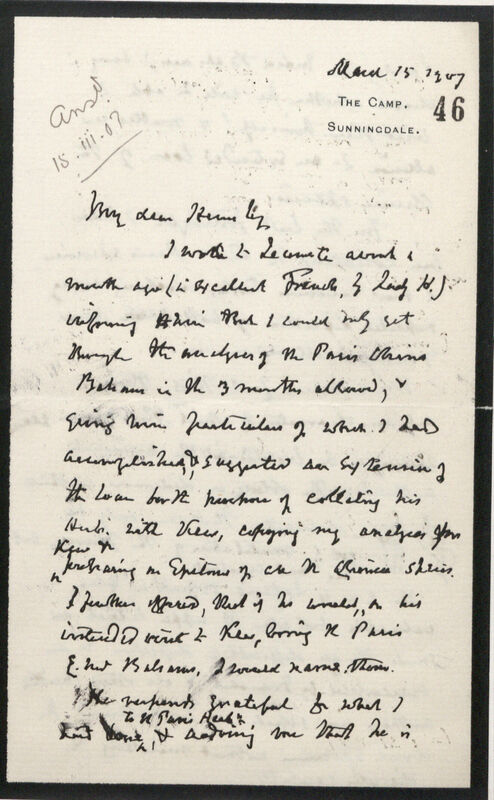 March 15 1907
THE CAMP,
SUNNINGDALE.
46
Ansd
15 III. 07
My dear Hemsley
I wrote to Lecomte about a
month ago (in excellent French, by Lady H.)
informing him that I could only get
through the analyses of the Paris China
Balsams in the 3 months allowed, &
giving him particulars of what I had
accomplished, & suggested an extension of
the loan for the purpose of collating his
Herb. with Kew, copying my analyses for
Kew &
preparing an Epitome of all the Chinese species.
I further offered, that if he would, on his
intended visit to Kew, bring the Paris
E. Ind Balsams, I would name them.
He responds grateful for what I
to the Paris Herb.
had done, & advising me that he is